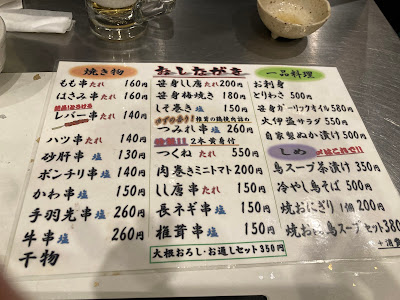 おしながき
焼き物
もも串 たれ 160円
はさみ串 たれ 160円
レバー串 たれ 140円
ハツ串 たれ 140円
砂肝串 塩 130円
ボンチリ串 塩 140円
かわ串 塩 150円
手羽先串 塩 260円
牛串 塩 260円
干物
笹身しし唐 たれ 200円
笹身梅焼き 180円
しそ巻き 塩 150円
つみれ串 塩 260円
2本黄身付
つくね たれ 550円
肉巻きミニトマト 200円
しし唐串 塩 150円
長ネギ串 塩 150円
椎茸串 塩 150円
大根おろし・お通しセット 350円
一品料理
お刺身
とりわさ 500円
笹身ガーリックオイル 580円
大伊盗サラダ 550円
自家製ぬか漬け 500円
しめ
鳥スープ茶漬け 350円
冷やし鳥そば 500円
焼おにぎり 1個 200円
焼お鳥スープセット 380
+消費